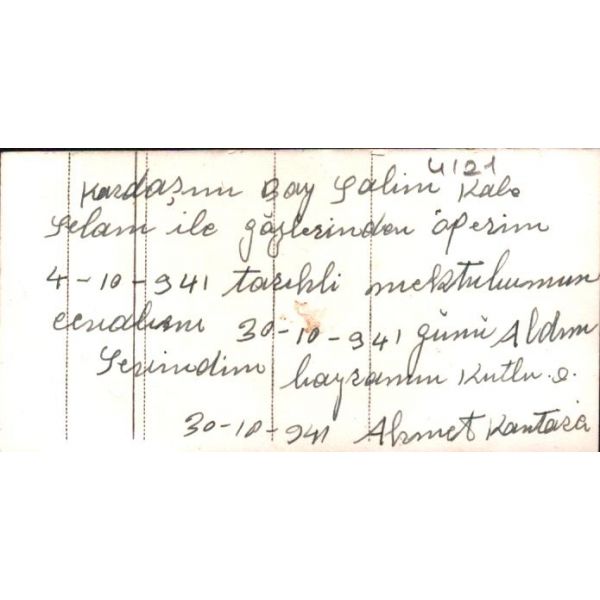 4121
Kardaşım Bay Salim Kale
Selam ile gözlerinden öperim
4-10-941 tarihli mektubumun
cevabını 30-10-941 günü Aldım
Sevindim bayramın Kutlu. o.
30-10-941 Ahmet